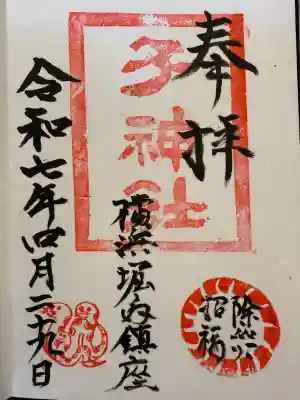 奉拝
子神社
横浜堀内鎮座
除災
招福
令和七年四月二十九日